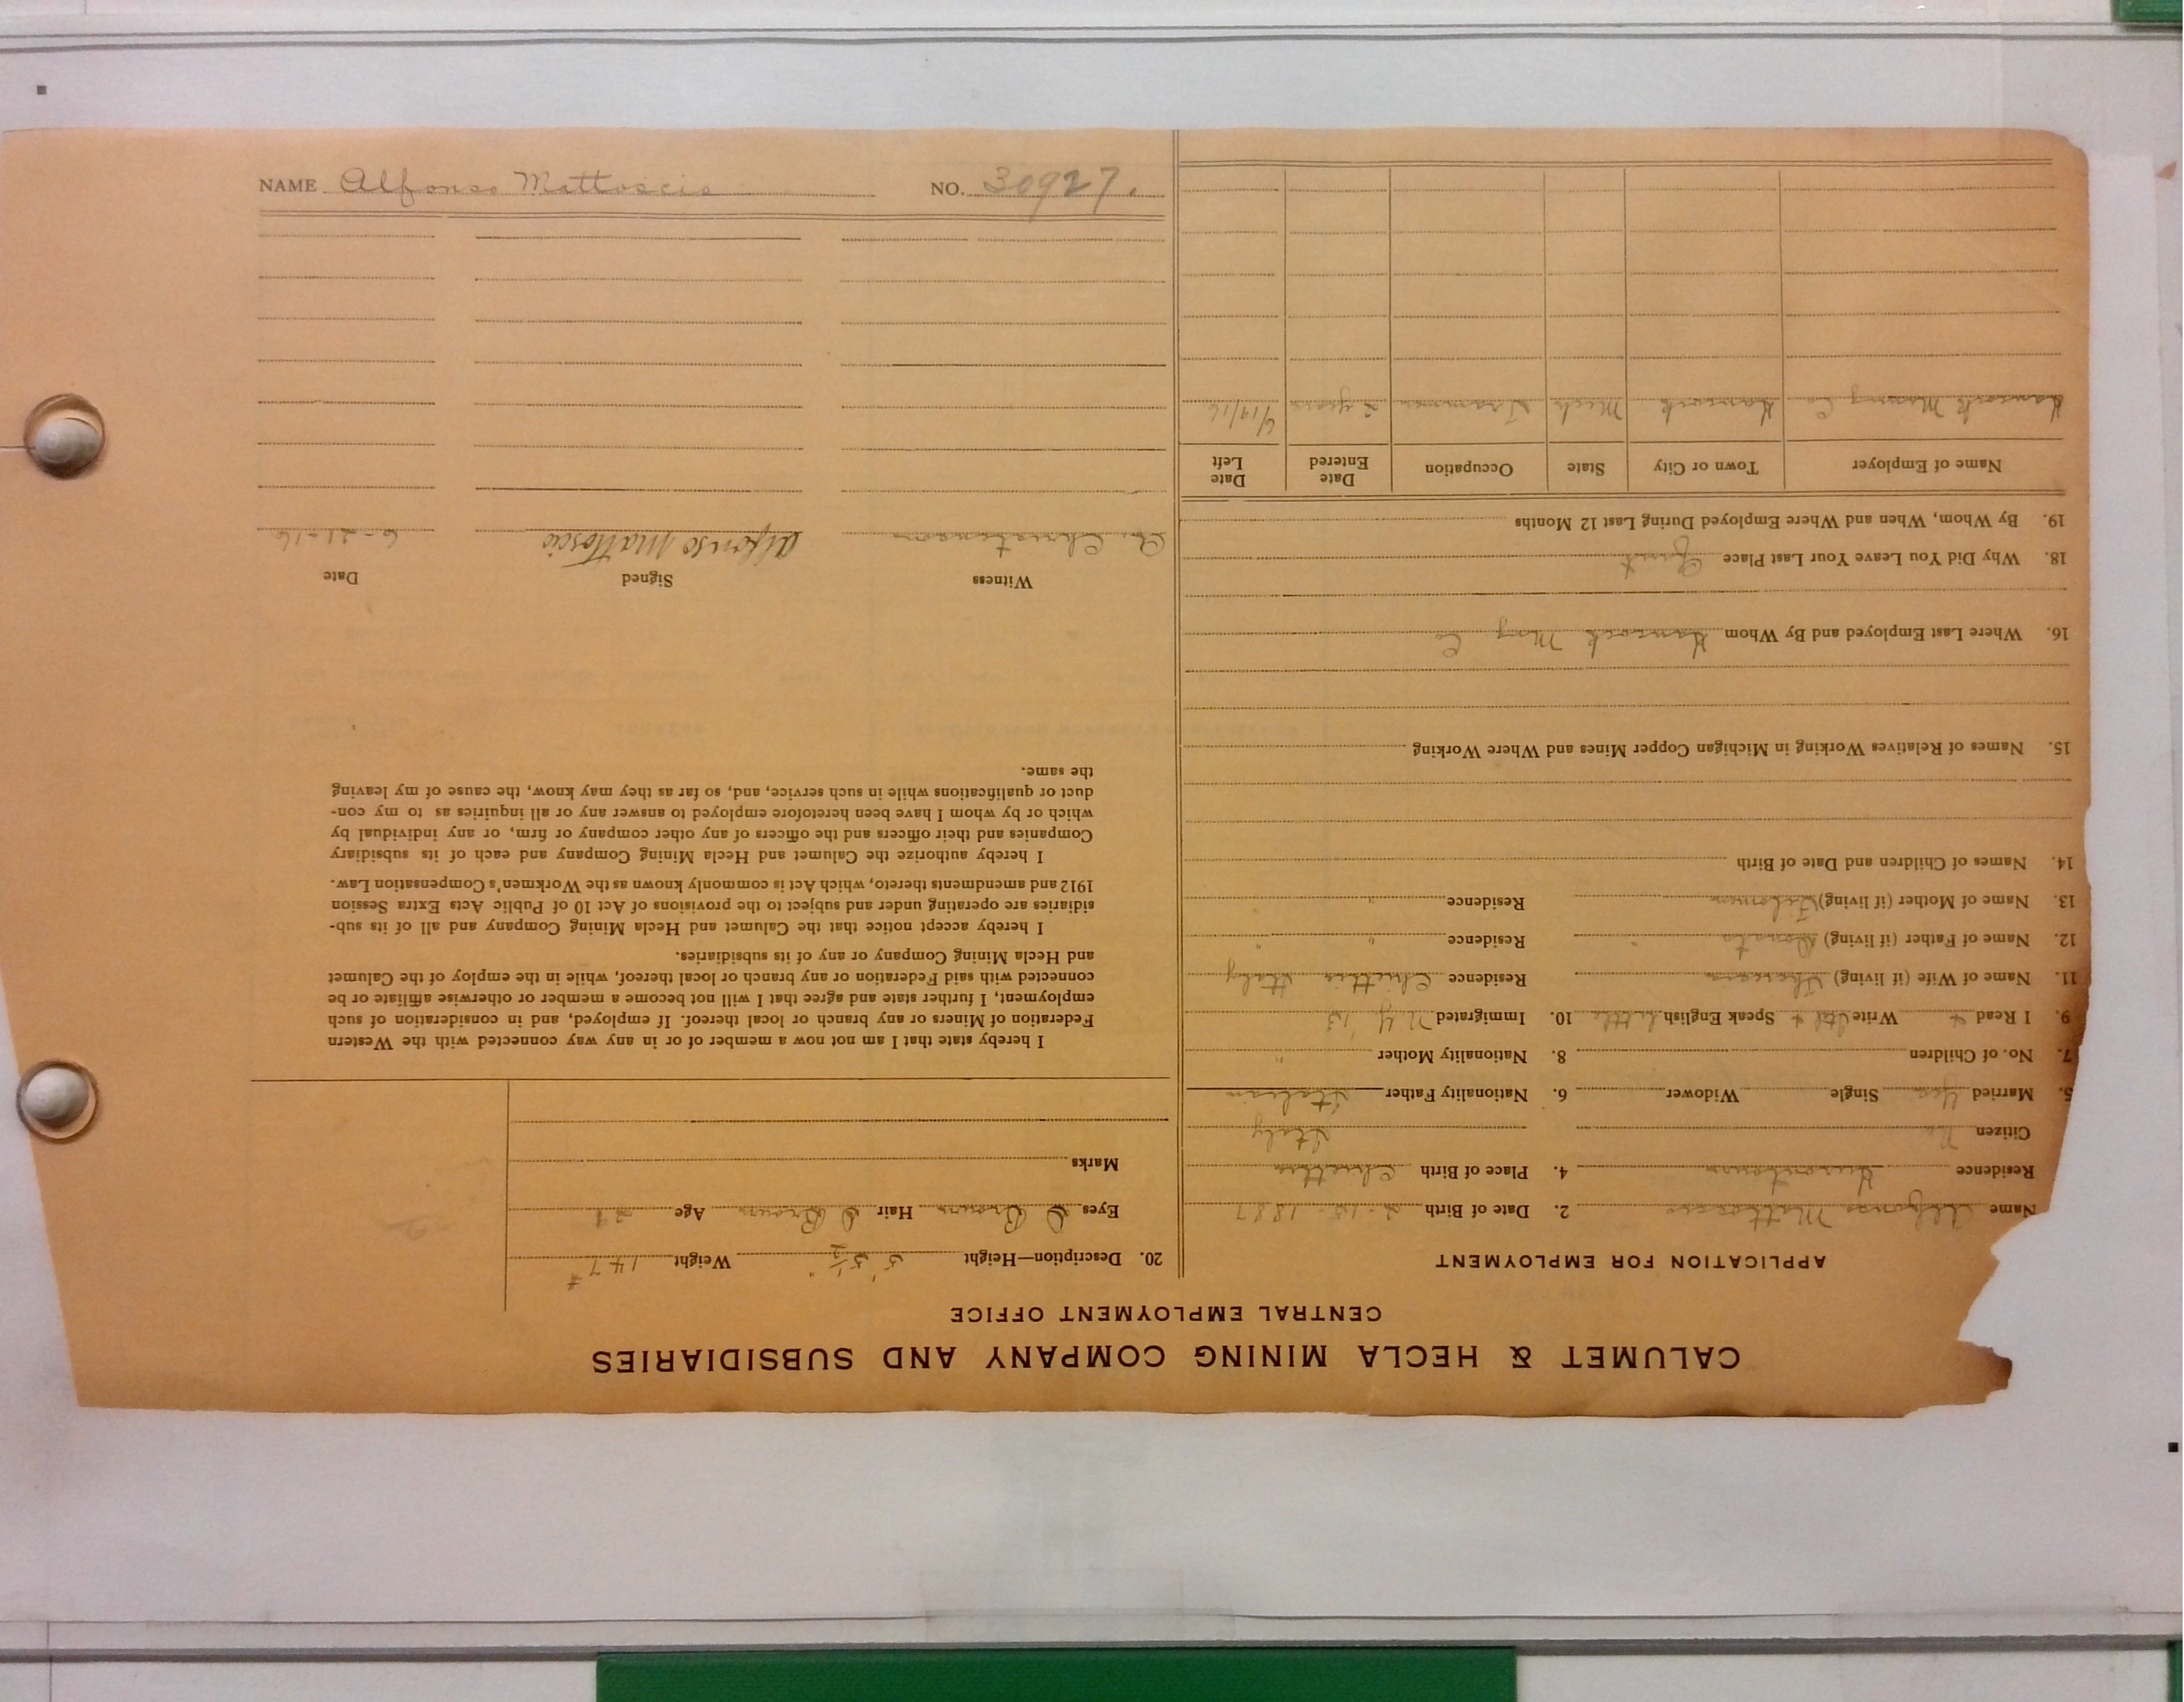 CALUMET & HECLA MINING COMPANY AND SUBSIDIARIES
CENTRAL EMPLOYMENT OFFICE
APPLICATION FOR EMPLOYMENT
Name Alfonso Mattoscio 2. Date of Birth 2-15-1887
Residence 4. Place of Birth Chietti
Citizen No Italy
5. Married Yes Single Widower 6. Nationality Father Italian
7. No. of Children 8. Nationality Mother "
9. I Read + Write Ital + Speak English Little 10. Immigrated N Y '13
11. Name of Wife (if living) Residence Chietti Italy
12. Name of Father (if living) Donato Residence " "
13. Name of Mother (if living) Residence "
14. Names of Children and Date of Birth
15. Names of Relatives Working in Michigan Copper Mines and Where Working
16. Where Last Employed and By Whom Hancock Mng Co
18. Why Did You Leave Your Last Place Quit
19. By Whom, When and Where Employed During Last 12 Months
Name of Employer Town or City State Occupation Date Entered Date Left
Hancock Mining Co Hancock Mich Trammer 2 years 6/19/16
20. Description—Height 5' 5½" Weight 147#
Eyes D Brown Hair D Brown Age 29
Marks
I hereby state that I am not now a member of or in any way connected with the Western
Federation of Miners or any branch or local thereof. If employed, and in consideration of such
employment, I further state and agree that I will not become a member or otherwise affiliate or be
connected with said Federation or any branch or local thereof, while in the employ of the Calumet
and Hecla Mining Company or any of its subsidiaries.
I hereby accept notice that the Calumet and Hecla Mining Company and all of its sub-
sidiaries are operating under and subject to the provisions of Act 10 of Public Acts Extra Session
1912 and amendments thereto, which Act is commonly known as the Workmen's Compensation Law.
I hereby authorize the Calumet and Hecla Mining Company and each of its subsidiary
Companies and their officers and the officers of any other company or firm, or any individual by
which or by whom I have been heretofore employed to answer any or all inquiries as to my con-
duct or qualifications while in such service, and, so far as they may know, the cause of my leaving
the same.
Witness Signed Date
Alfonso Mattoscio 6-21-16
NAME Alfonso Mattoscio NO. 30927.